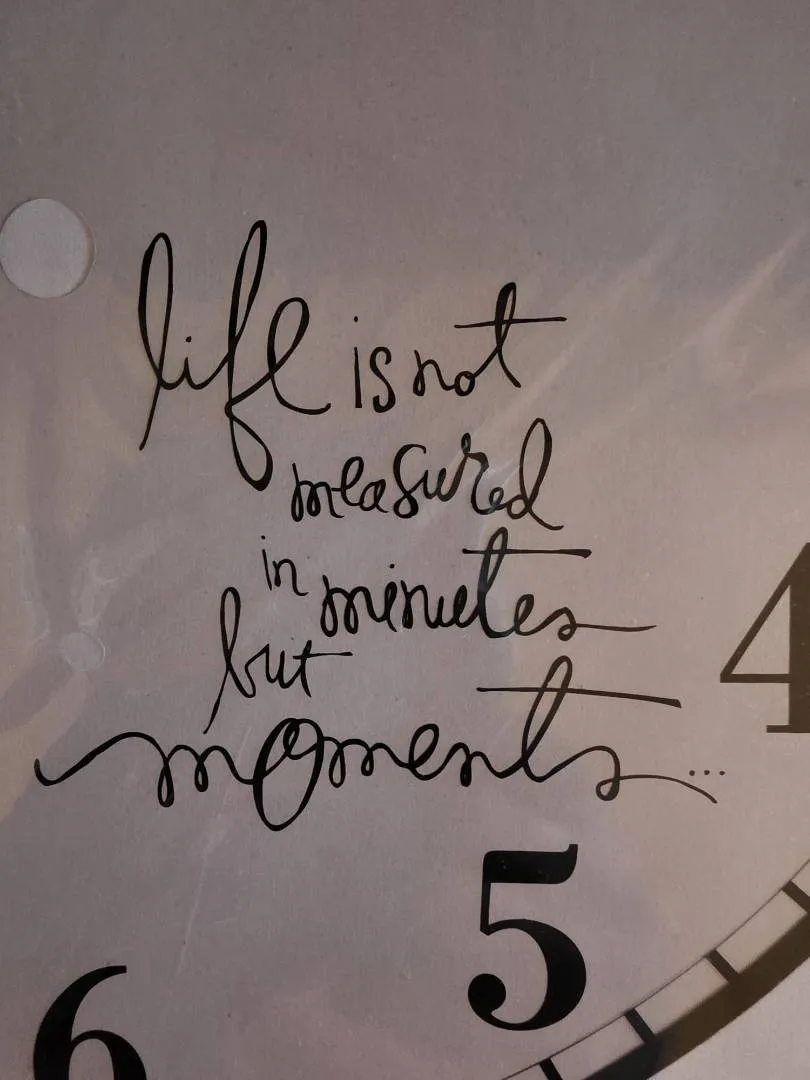 life is not
measured
in minutes
but
moments...
4
5
6